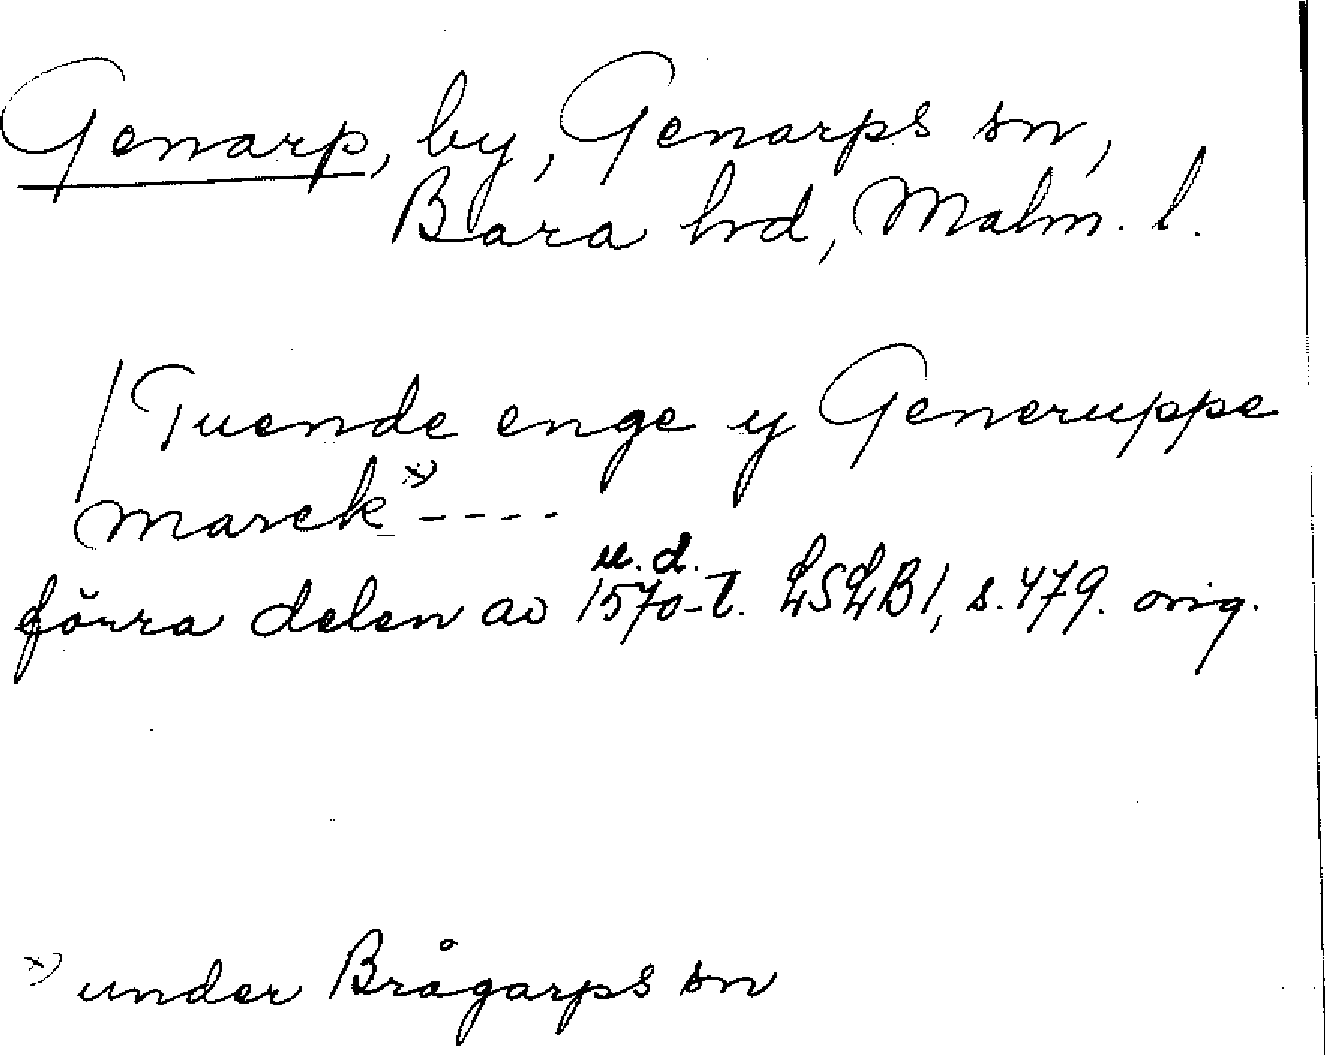 Genarp, by, Genarps sn,
Bara hrd, Malm. l.
/Tuende enge y Generuppe
marck x) ----
u. d.
förra delen av 1570-t. LSLB1, s. 479. orig.
x) under Brågarps sn